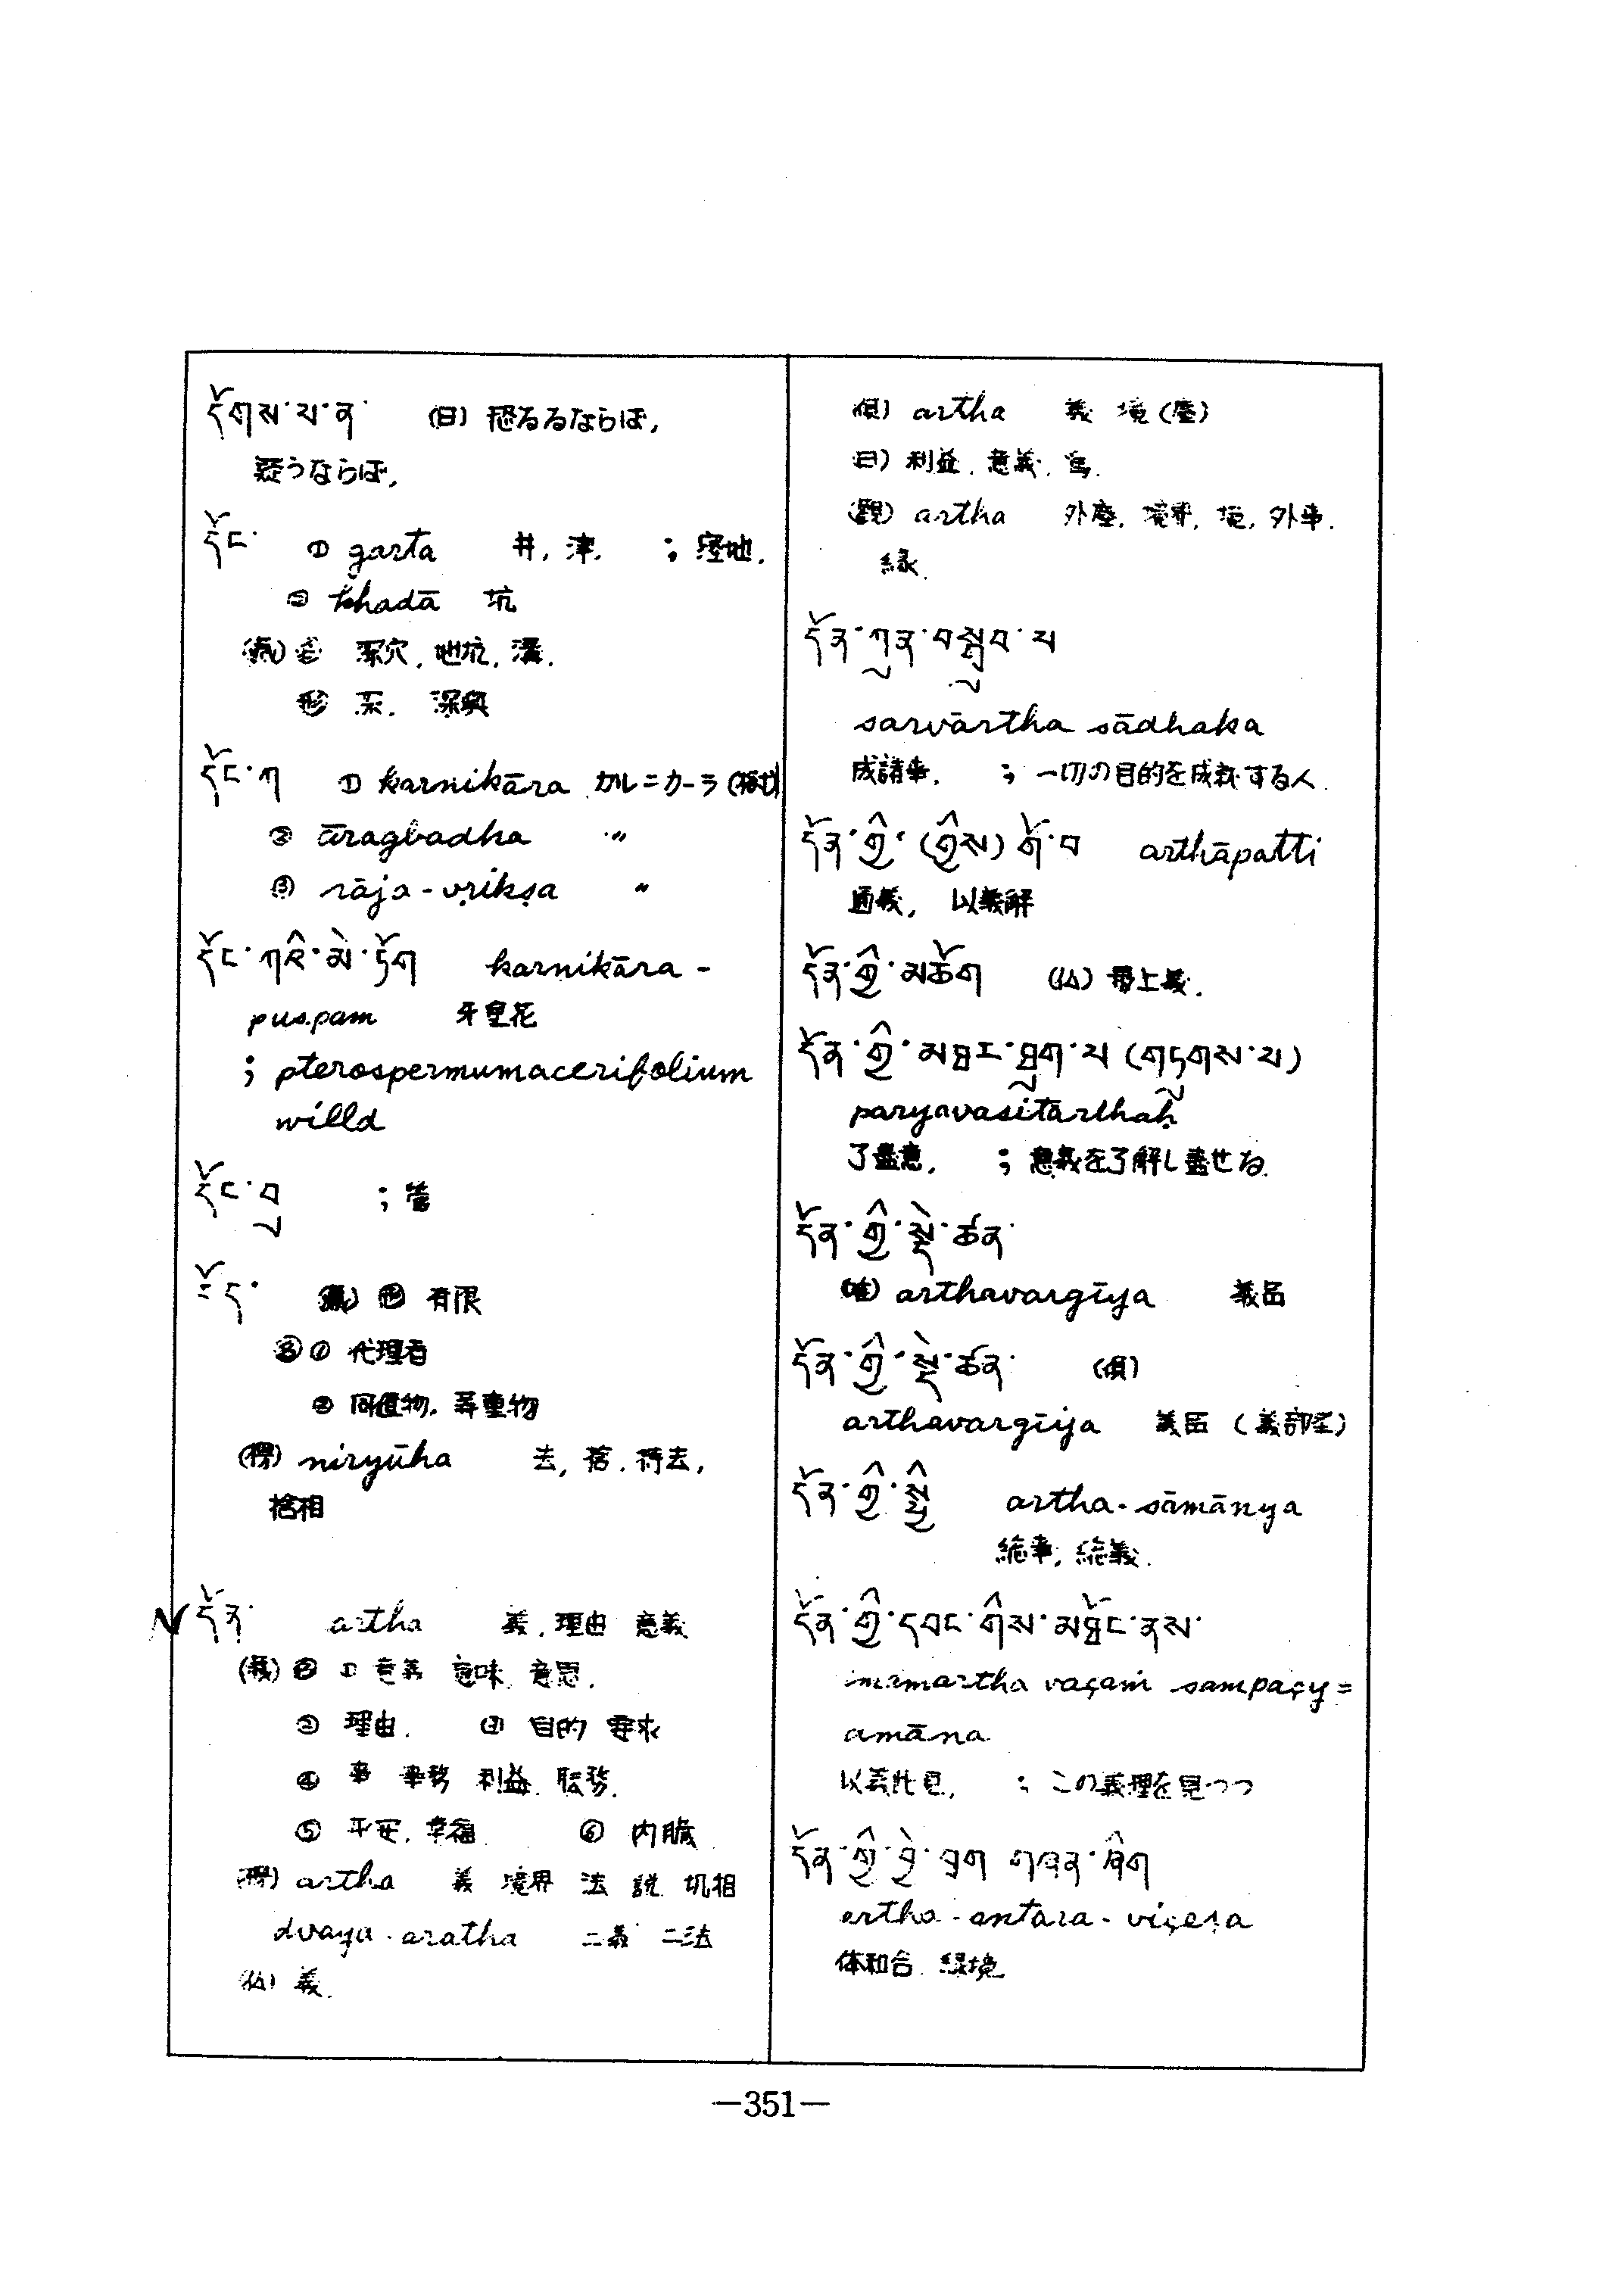 དོགས་པ་ན་ (日) 恐るるならば,
疑うならば,
དོང་ ① garta 井, 津. ; 窪地.
② khadā 坑
深穴, 地坑, 溝.
深奥
དོང་ཀ ① karnikāra カルニカーラ
② āragbadha 〃
③ rāja-vṛikṣa 〃
དོང་ཀའི་མེ་ཏོག karnikāra-
puṣpam 牙皇花
; pterospermumacerifolium
willd
དོང་བུ ; 管
དོད་ (蔵) 形 有限
名 ① 代理者
② 同値物, 等重物
(楞) niryūha 去, 捨. 得去,
捨相
དོན་ artha 義, 理由 意義
(蔵) 名 ① 意義 意味 意思.
② 理由. ③ 目的 要求
④ 事 事務 利益. 職務.
⑤ 平安, 幸福 ⑥ 内臓
(楞) artha 義 境界 法 説
dvaya-aratha 二義 二法
(仏) 義.
(倶) artha 義 境(塵)
(日) 利益. 意義. 為.
(観) artha 外塵, 境界, 境, 外事.
縁.
དོན་ཀུན་བསྒྲུབ་པ
sarvārtha sādhaka
成諸事. ; 一切の目的を成就する人.
དོན་གྱི་(གྱིས)གོ་བ arthāpatti
通義, 以義解
དོན་གྱི་མཆོག (仏) 帯上義.
དོན་གྱི་མཐར་ཐུག་པ (གཏུགས་པ)
paryavasitārthaḥ
了盡意. ; 意義を了解し盡せる.
དོན་གྱི་སྡེ་ཚན་
(唯) arthavargīya 義品
དོན་གྱི་སྡེ་ཚན་ (倶)
arthavargīya 義品 (義部経)
དོན་གྱི་སྤྱི artha-sāmānya
総事, 総義.
དོན་གྱི་དབང་གིས་མཐོང་ནས་
imamartha vaçaṁ sampaçy=
amāna
以義此見. ; この義理を見つつ
དོན་གྱི་བྱེ་བྲག གཞན་ཞིག
artha-antara-viçeṣa
体和合. 縁境
—351—